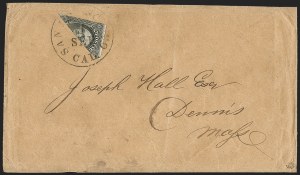 SAN
CAL
Joseph Hall Esq
Dennis
Mass